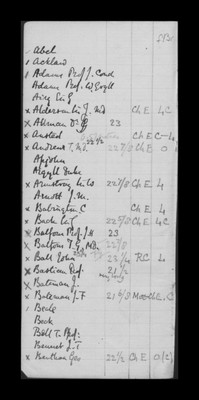 513
Abel
Acklaw
Adams Prof J. Couch
Adams Prof. W. Gryll
Airy Sir G
x Alderson Sir J. MD Ch E 4C
x Allman Dr G 23
x Ansted Ch E C-4
22 1/2
x Andrews T. M.D. 22 7/8 Ch E 0
Apjohn
Argyll Duke
x Armstrong Sir W 22 7/8 Ch E 4
Arnott J. M.
x Babington C Ch E 4
x Back Sir G 22 5/8 Ch E 4C
x Balfour Prof J H 23
x Balfour T. G. MD 22/8
x Ball John 22 1/4 F.C 4
x Bastian Prof. 21 1/2
x Bateman J.
x Bateman J. F 21 6/8 C
Beale
Beck
Bell T. Prof.
Bennet J. J
x Bentham Geo 22 1/2 Ch E 0(2)